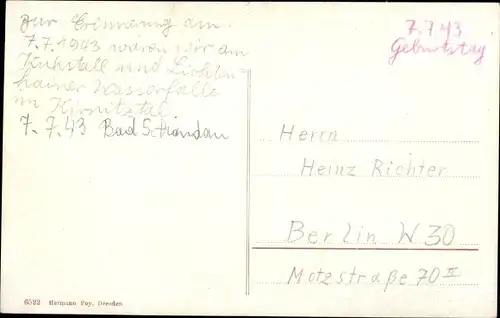 Zur Erinnerung am.
7.7.1943 waren wir am
Kuhstall und Lichten-
hainer Wasserfalle
im Kirnitztal
7. 7. 43 Bad Schandau
7.7.43
Geburtstag
Herrn
Heinz Richter
Berlin W 30
Motzstraße 70 II
6522 Hermann Poy, Dresden